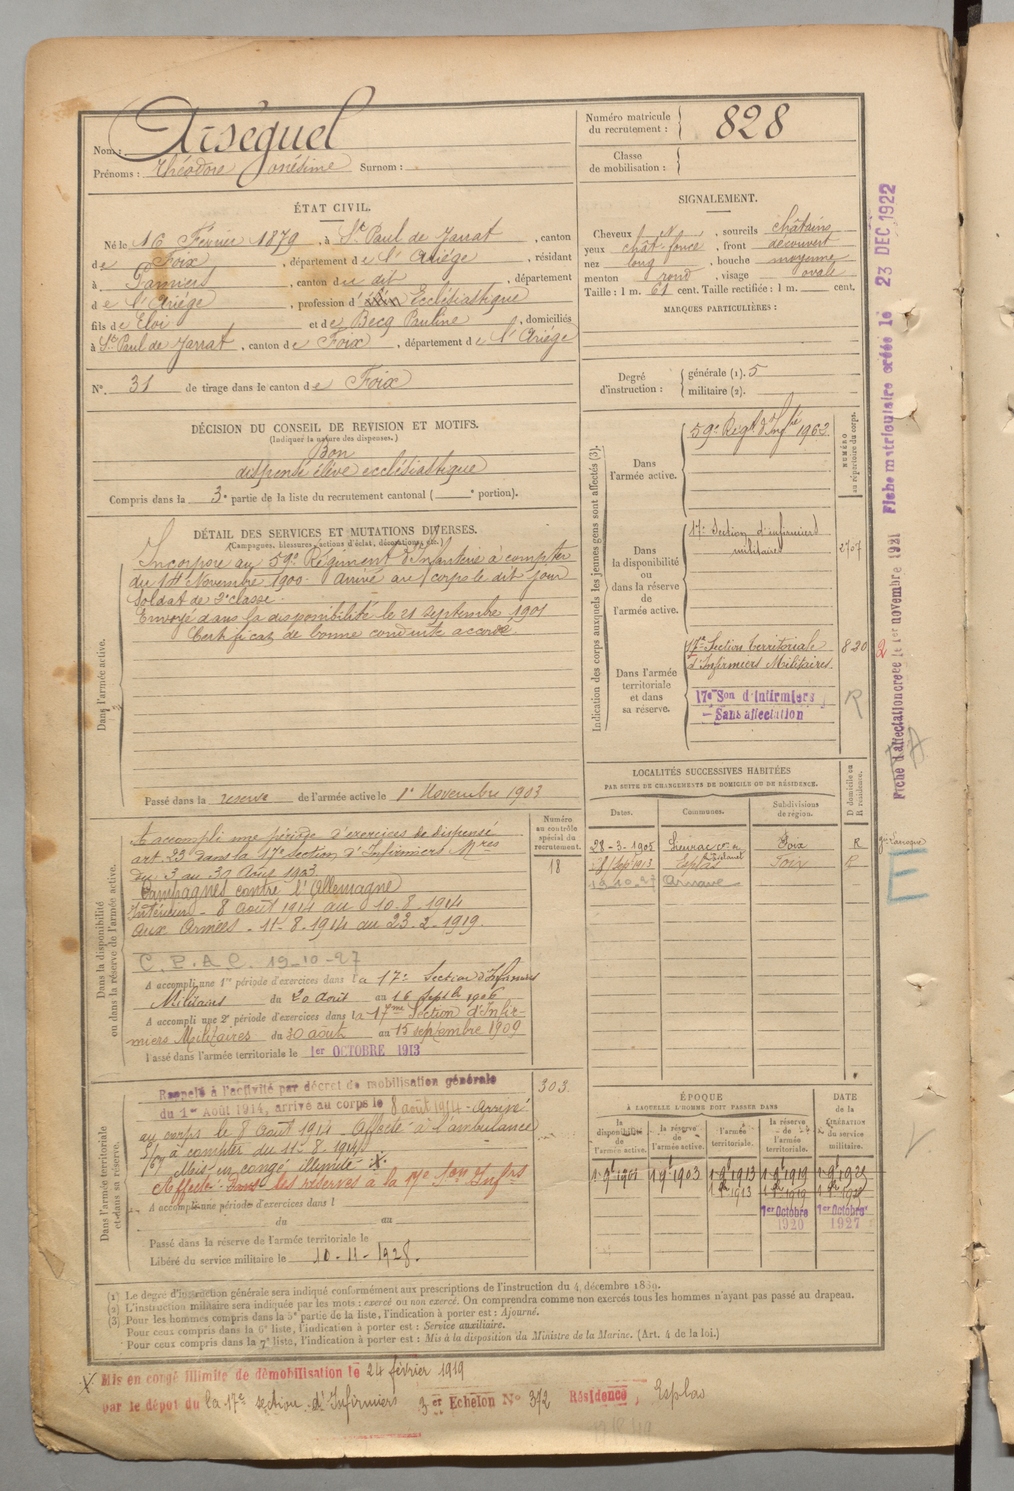 Nom : Arséguel
Prénoms : Théodore Onésime Surnom :
Numéro matricule du recrutement : 828
Classe de mobilisation :
ÉTAT CIVIL.
Né le 16 Février 1879, à St Paul de Jarrat, canton
de Foix, département de l'Ariège, résidant
à Pamiers, canton de dit, département
de l'Ariège, profession d' Ecclésiastique
fils de Eloi et de Becq Pauline, domiciliés
à St Paul de Jarrat, canton de Foix, département de l'Ariège
N° 31 de tirage dans le canton de Foix
SIGNALEMENT.
Cheveux , sourcils châtains
yeux chât. foncé, front découvert
nez long, bouche moyenne
menton rond, visage ovale
Taille : 1 m. 61 cent. Taille rectifiée : 1 m. cent.
MARQUES PARTICULIÈRES :
Degré d'instruction : générale (1). 5
militaire (2).
DÉCISION DU CONSEIL DE REVISION ET MOTIFS.
(Indiquer la nature des dispenses.)
Bon
dispensé élève ecclésiastique
Compris dans la 3e partie de la liste du recrutement cantonal ( e portion).
DÉTAIL DES SERVICES ET MUTATIONS DIVERSES.
(Campagnes, blessures, actions d'éclat, décorations, etc.)
Dans l'armée active.
Incorporé au 59e Régiment d'Infanterie à compter
du 14 Novembre 1900. Arrivé au corps le dit jour
soldat de 2e classe.
Envoyé dans la disponibilité le 21 septembre 1901
Certificat de bonne conduite accordé.
Passé dans la réserve de l'armée active le 1er Novembre 1903
Indication des corps auxquels les jeunes gens sont affectés (3).
NUMÉRO au répertoire du corps.
Dans l'armée active.
59e Régt d'Infie 1962
Dans la disponibilité ou dans la réserve de l'armée active.
17e Section d'infirmiers militaires
2707
Dans l'armée territoriale et dans sa réserve.
17e Section territoriale d'Infirmiers Militaires.
820
17e Son d'Infirmiers
Sans affectation
R
Fiche d'affectation créée le 1er novembre 1921
Fiche matriculaire créée le 23 DEC. 1922
LOCALITÉS SUCCESSIVES HABITÉES
PAR SUITE DE CHANGEMENTS DE DOMICILE OU DE RÉSIDENCE.
Dates. Communes. Subdivisions de région. D domicile ou R résidence.
28-3-1905 Foix R
1er Sept 1913 Esplas Foix R
19.10.27 Arnave
E
Dans la disponibilité ou dans la réserve de l'armée active.
Numéro au contrôle spécial du recrutement.
18
A accompli une période d'exercices de dispensé
art. 23 dans la 17e section d'Infirmiers Mres
du 3 au 30 Août 1903.
Campagnes contre l'Allemagne
Intérieur - 8 août 1914 au 10.8.1914
aux Armées - 11-8-1914 au 23-2-1919.
19-10-27
A accompli une 1re période d'exercices dans la 17e Section d'Infirmiers
Militaires du 20 août au 16 Septbre 1906
A accompli une 2e période d'exercices dans la 17me Section d'Infir-
miers Militaires du 30 août au 15 septembre 1909
Passé dans l'armée territoriale le 1er OCTOBRE 1913
Dans l'armée territoriale et dans sa réserve.
303
Rappelé à l'activité par décret de mobilisation générale
du 1er Août 1914, arrivé au corps le 8 août 1914. Arrivé
au corps le 8 août 1914. Affecté à l'ambulance
5/67 à compter du 11-8-1914.
Mis en congé illimité X.
Affecté dans les réserves à la 17e Son Infrs
A accompli une période d'exercices dans l
du au
Passé dans la réserve de l'armée territoriale le
Libéré du service militaire le 10-11-1928.
ÉPOQUE
À LAQUELLE L'HOMME DOIT PASSER DANS
DATE de la LIBÉRATION du service militaire.
la disponibilité de l'armée active.
la réserve de l'armée active.
l'armée territoriale.
la réserve de l'armée territoriale.
1 9bre 1901 1 9bre 1903 1 9bre 1913 1 9bre 1919 1 9bre 1925
1er Octobre 1920
1er Octobre 1927
(1) Le degré d'instruction générale sera indiqué conformément aux prescriptions de l'instruction du 4 décembre 1889.
(2) L'instruction militaire sera indiquée par les mots : exercé ou non exercé. On comprendra comme non exercés tous les hommes n'ayant pas passé au drapeau.
(3) Pour les hommes compris dans la 5e partie de la liste, l'indication à porter est : Ajourné.
Pour ceux compris dans la 6e liste, l'indication à porter est : Service auxiliaire.
Pour ceux compris dans la 7e liste, l'indication à porter est : Mis à la disposition du Ministre de la Marine. (Art. 4 de la loi.)
X Mis en congé illimité de démobilisation le 24 février 1919
par le dépôt du la 17e section d'Infirmiers 3er Echelon No 372 Résidence, Esplas